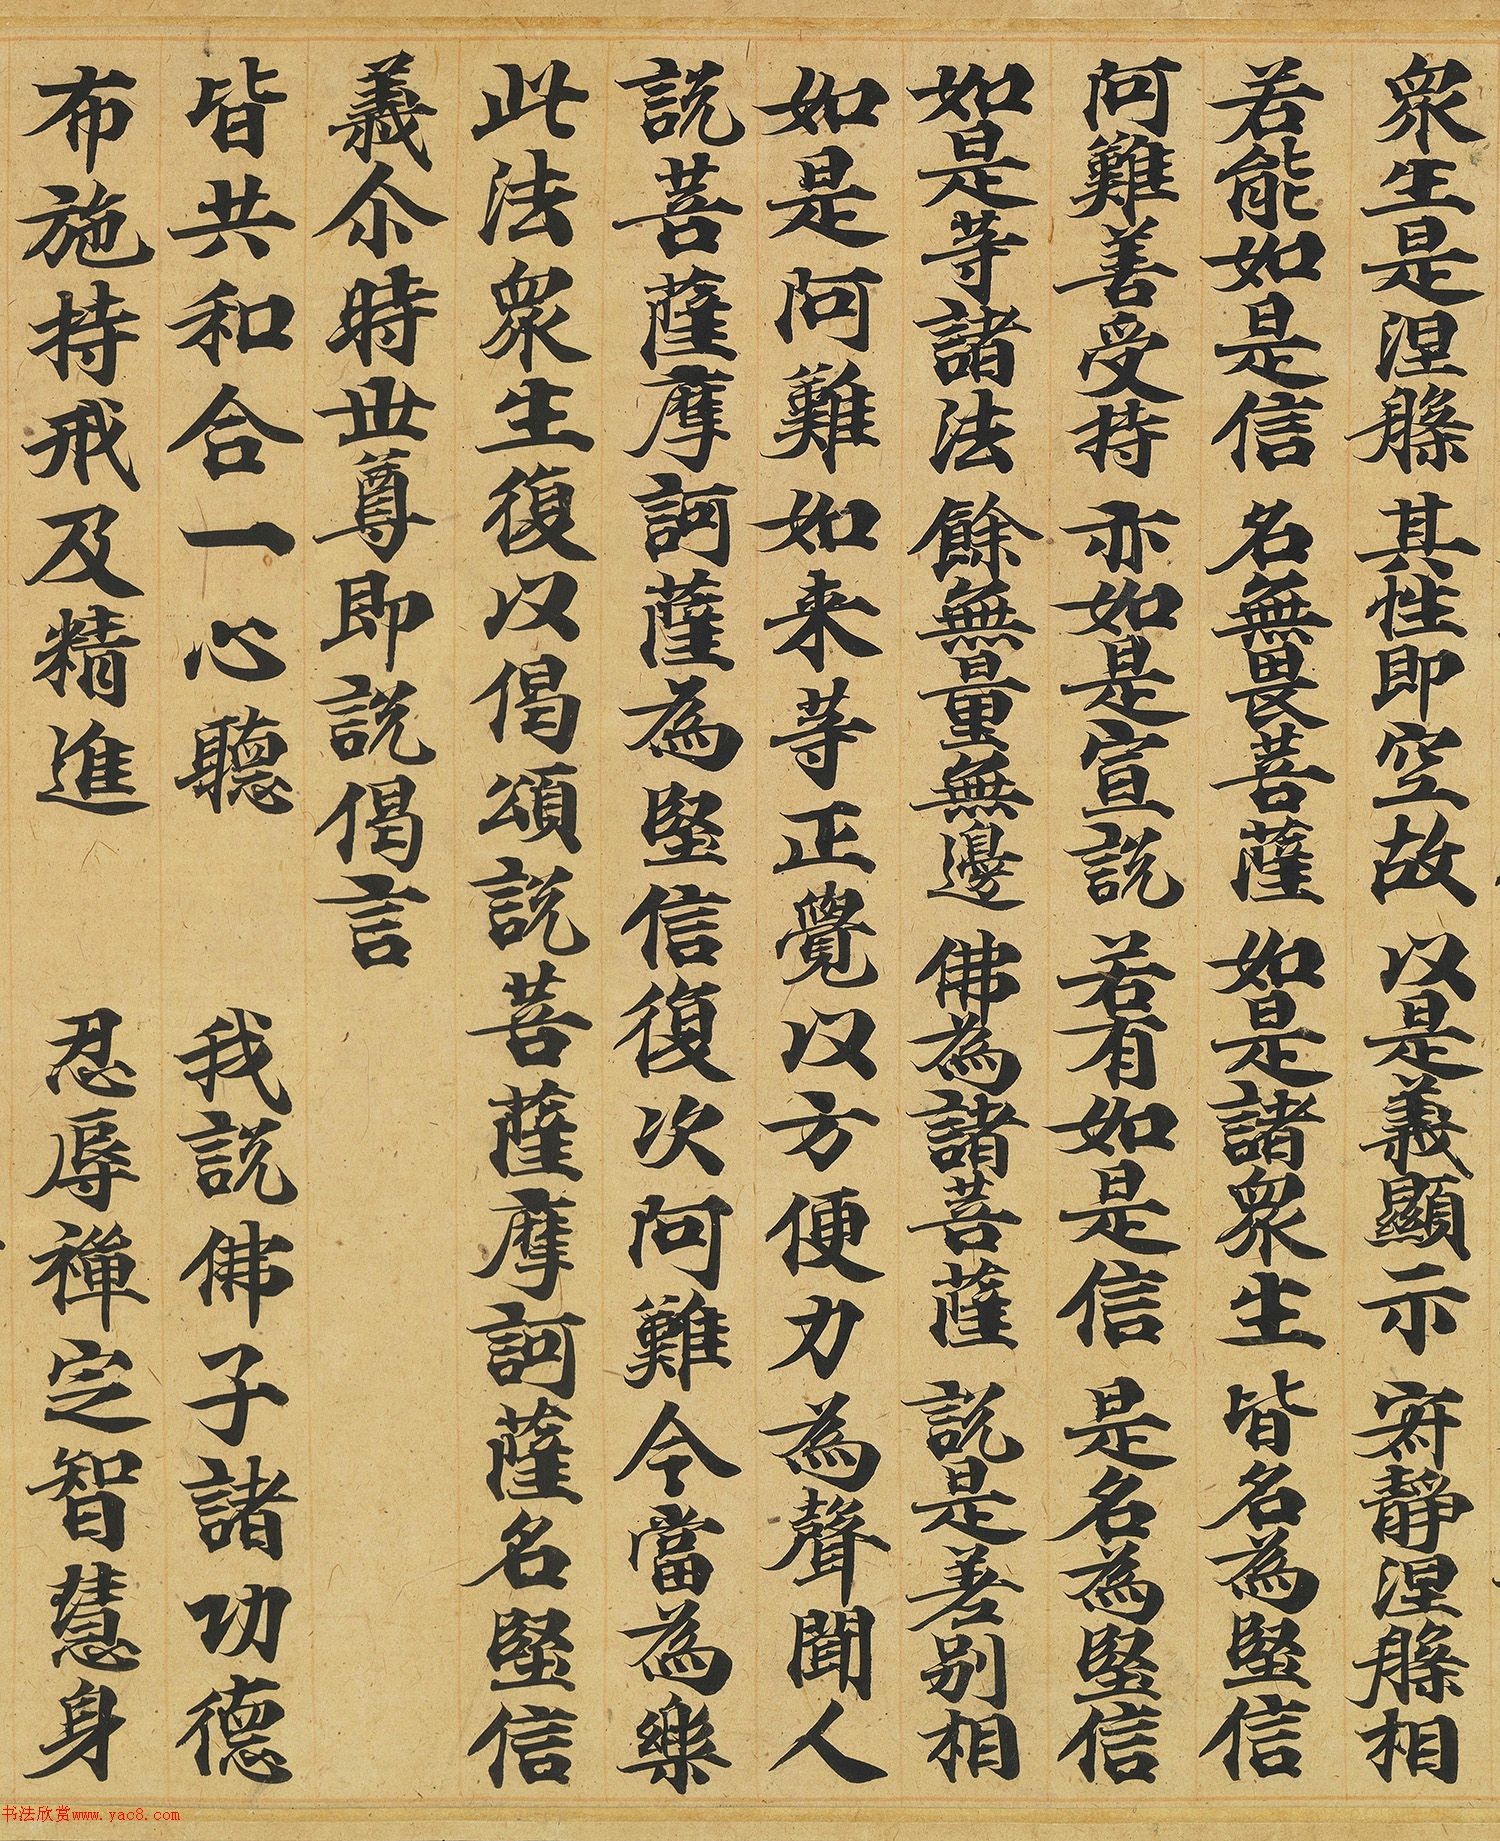 眾生是涅槃 其性即空故 以是義顯示 寂靜涅槃相
若能如是信 名無畏菩薩 如是諸眾生 皆名為堅信
阿難善受持 亦如是宣說 若有如是信 是名為堅信
如是等諸法 餘無量無邊 佛為諸菩薩 說是差別相
如是阿難如来等正覺以方便力為聲聞人
說菩薩摩訶薩為堅信復次阿難今當為樂
此法眾生復以偈頌說菩薩摩訶薩名堅信
義尒時世尊即說偈言
皆共和合一心聽 我說佛子諸功德
布施持戒及精進 忍辱禪定智慧身
书法欣赏www.yac8.com